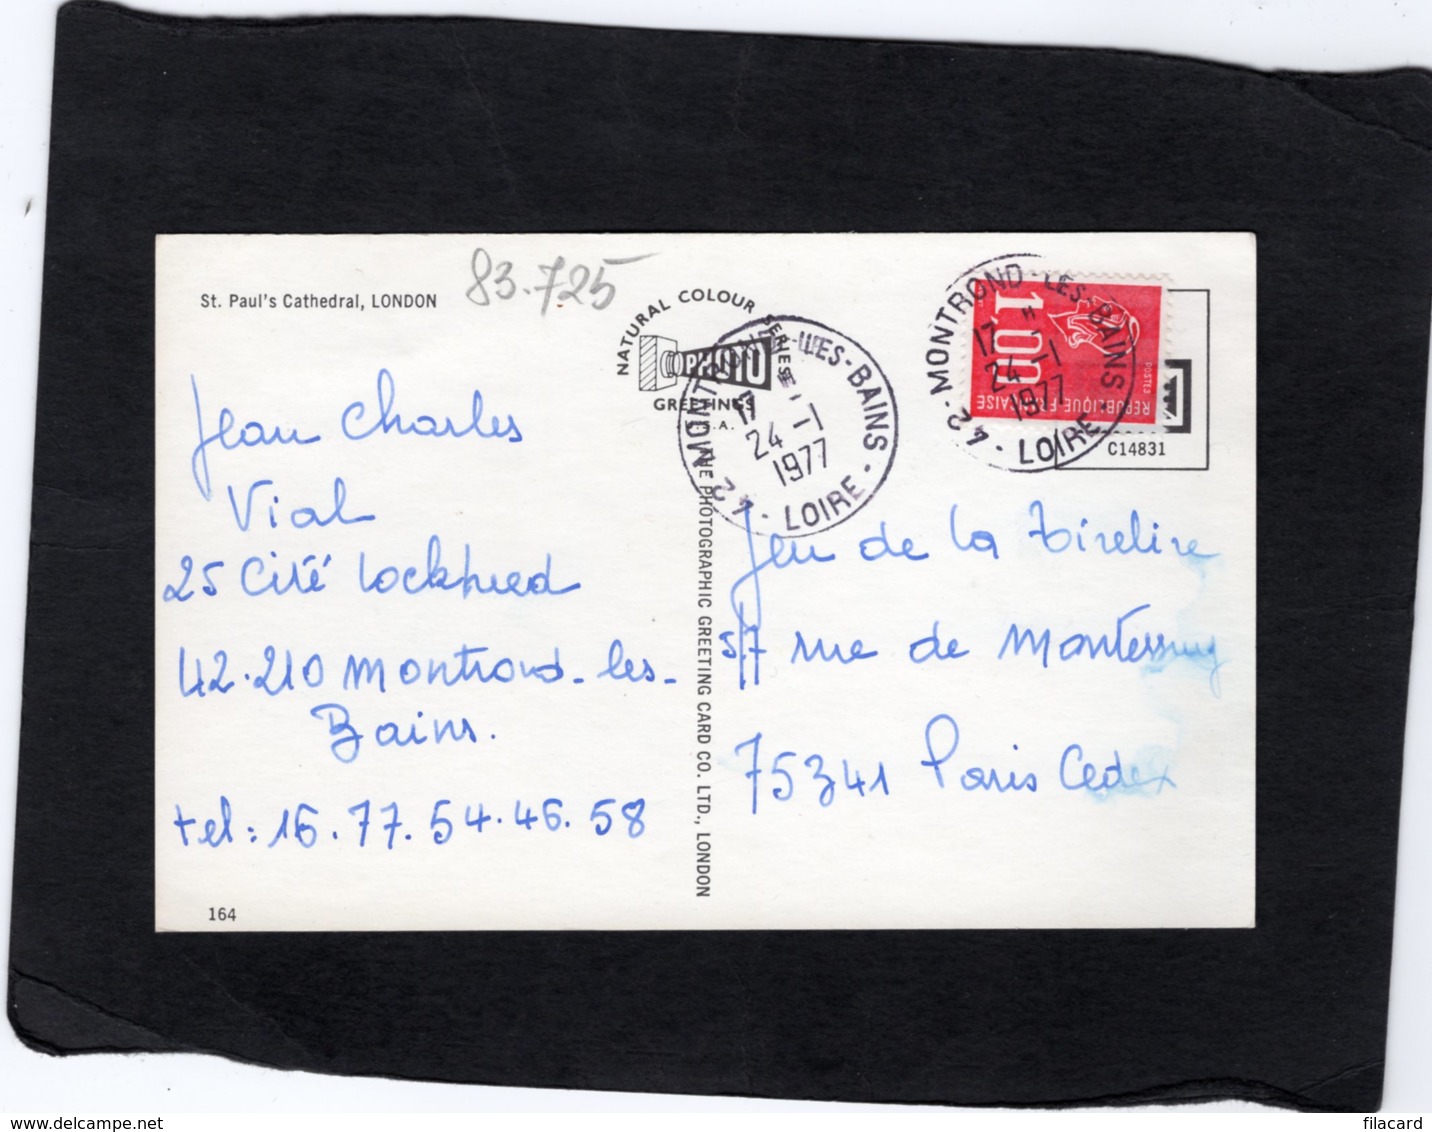 St. Paul's Cathedral, LONDON
83.725
NATURAL COLOUR SERIES
PHOTO
GREETINGS
Jean Charles
Vial
25 Cité Lockheed
42.210 Montrond-les-
Bains.
tel: 16.77.54.46.58
164
THE PHOTOGRAPHIC GREETING CARD CO. LTD., LONDON
42 MONTROND-LES-BAINS
17 H
24-1
1977
LOIRE
42 - MONTROND-LES-BAINS
17 H
24-1
1977
LOIRE
1,00
POSTES
REPUBLIQUE FRANÇAISE
C14831
Jeu de la Tirelire
5/7 rue de Monttessuy
75341 Paris Cedex
filacard